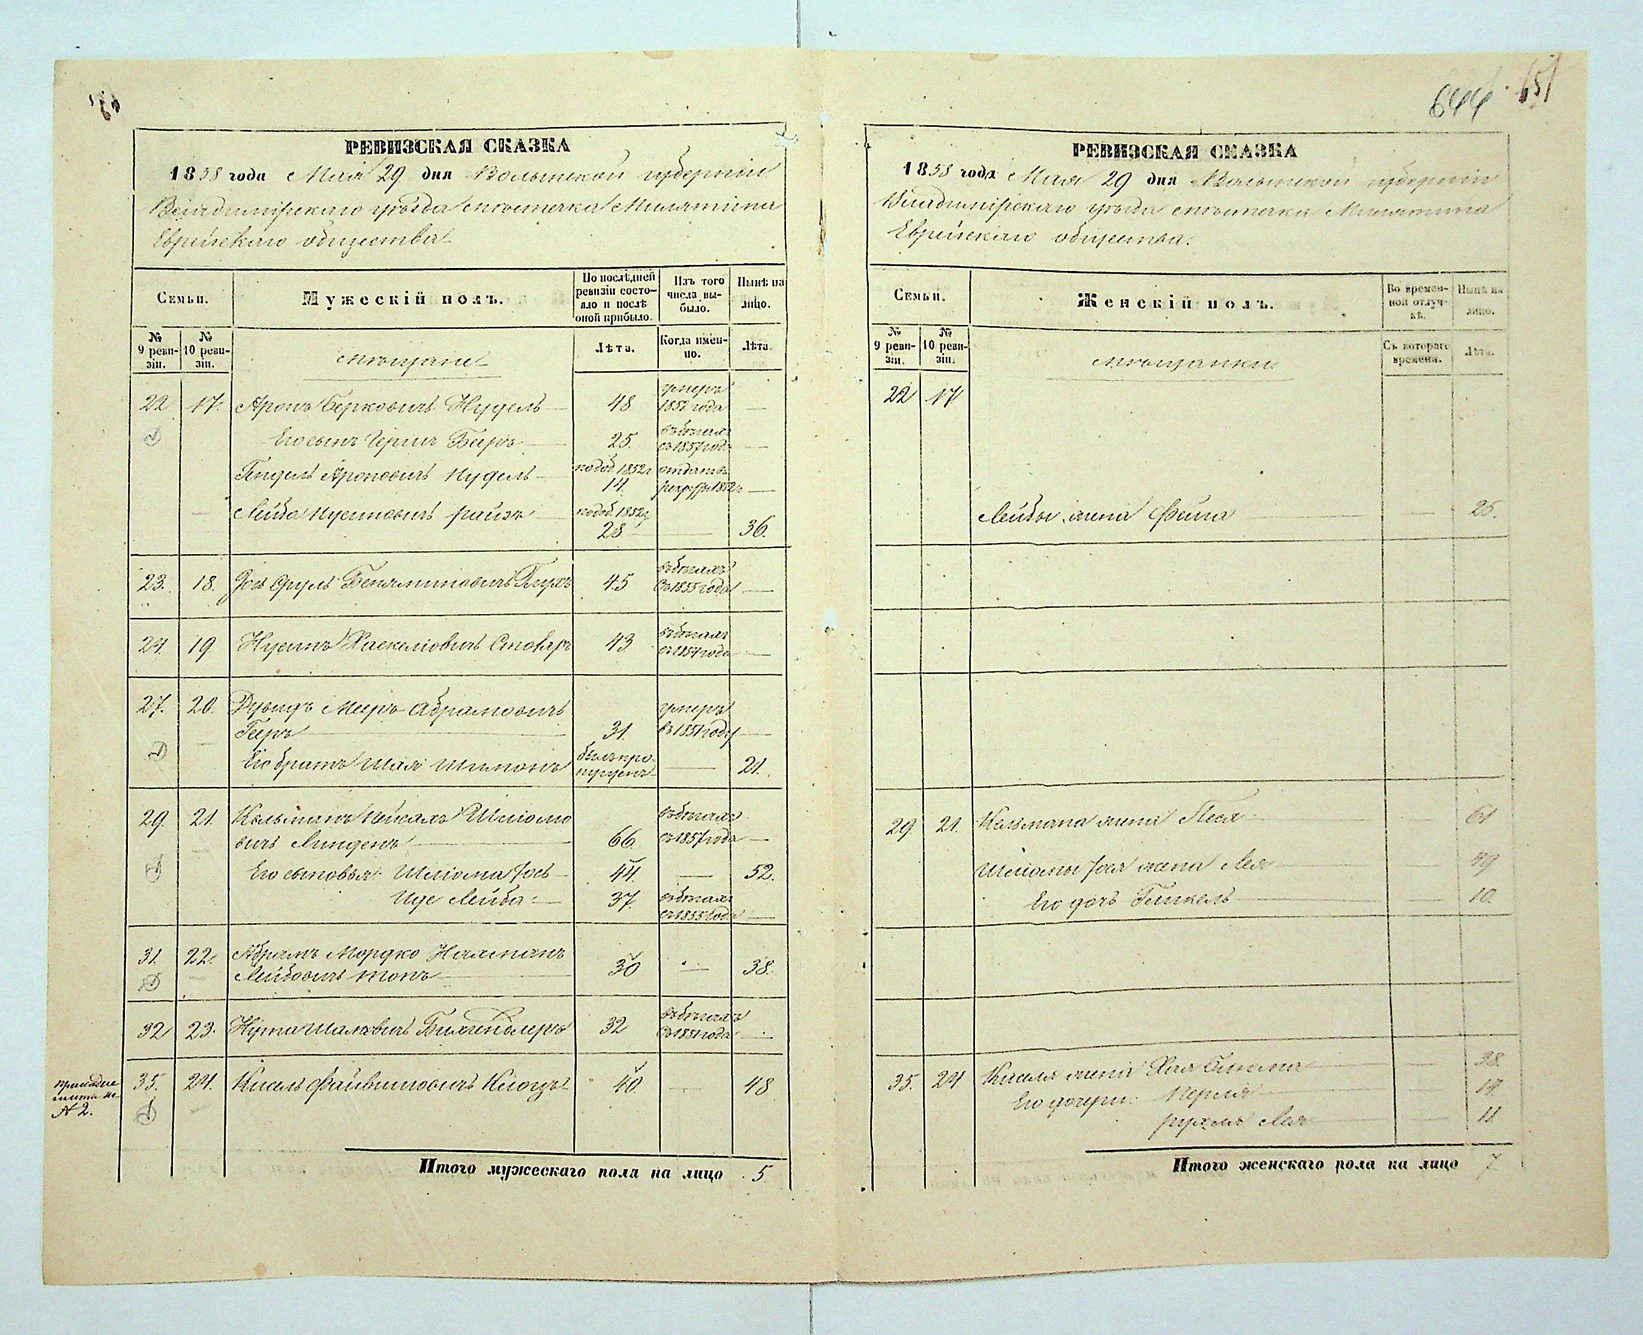 644 651
РЕВИЗСКАЯ СКАЗКА
1858 года Мая 29 дня Волынской губернии
Владимірскаго уѣзда мѣстечка Милятина
Еврейскаго общества
Семьи.
Мужескій полъ.
По послѣдней ревизіи состояло и послѣ оной прибыло.
Изъ того числа выбыло.
Нынѣ на лицо.
№ 9 ревизіи.
№ 10 ревизіи.
мѣщане
Лѣта.
Когда именно.
Лѣта.
22 17. Аронъ Берковичъ Нудель 48 умеръ 1851 года —
Его сынъ Гершъ Беръ 25. въ бѣгахъ съ 1857 года —
Ароновичъ Нудель по доб. 1852 г. 14. отданъ въ рекруты 1852 г. —
Лейба Нусиновичъ по доб. 1852 г. 28 — 36.
23. 18. Іось Сруль Беньяминовичъ 45 въ бѣгахъ съ 1855 года —
24. 19 Нусинъ Хаскелiовичъ Столяръ 43 въ бѣгахъ съ 1854 года —
27. 20. Дувидъ Мееръ Абрамовичъ
Геръ 31. умеръ въ 1851 году —
Его братъ Шая Шимонъ былъ пропущенъ — 21.
29. 21. Кальманъ Шліомовичъ Линденъ 66. въ бѣгахъ съ 1857 года —
Его сыновья: Шліома Іось 44. — 52.
Иде Лейба 37. въ бѣгахъ съ 1855 года —
31. 22. Абрамъ Мордко Нахманъ
Лейбовичъ 30 — 38.
32 23. Нута 32 въ бѣгахъ съ 1851 года —
35. 24. Кисель Файвишовичъ Клоцъ 40 — 48.
№ 2.
Итого мужескаго пола на лицо 5
РЕВИЗСКАЯ СКАЗКА
1858 года Мая 29 дня Волынской губерніи
Владимірскаго уѣзда мѣстечка Милятина
Еврейскаго общества.
Семьи.
Женскій полъ.
Во временной отлучкѣ.
Нынѣ на лицо.
№ 9 ревизіи.
№ 10 ревизіи.
мѣщанки
Съ котораго времени.
Лѣта.
22 17
Лейбы жена Фейга — 25.
29 21. Кальмана жена Песя 61
Шліомы Іося жена Лея 49
Его дочь 10.
35. 24 Киселя жена Хая 38.
Его дочери: Перля 14.
Рухля Лея 11.
Итого женскаго пола на лицо 7